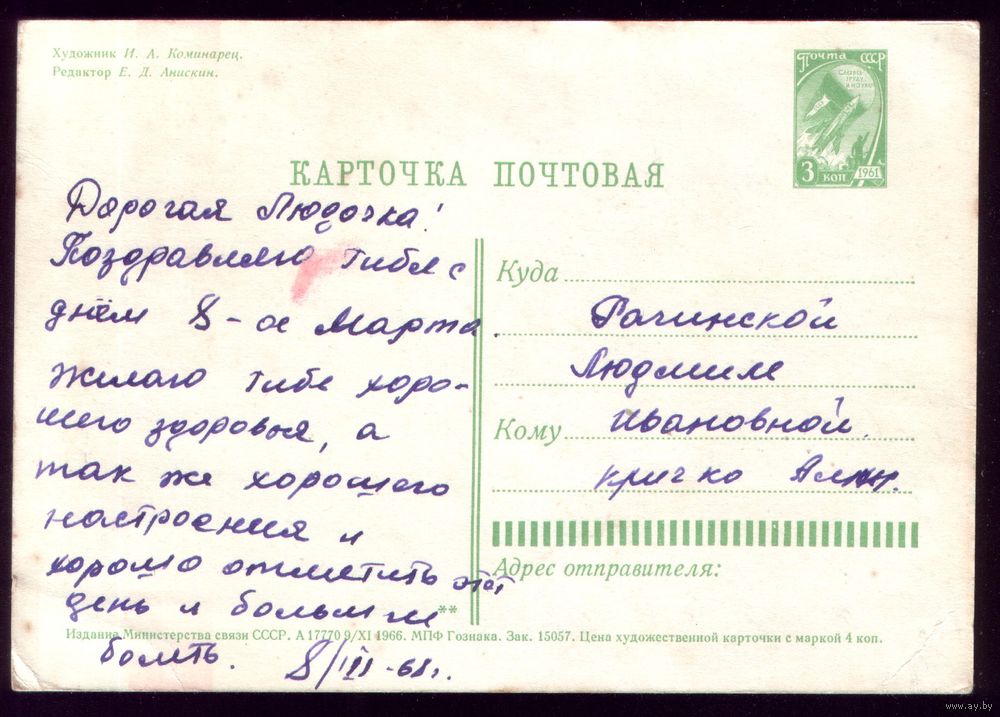 Художник И. А. Коминарец.
Редактор Е. Д. Анискин.
Почта СССР
СЛАВА ТРУДУ И НАУКЕ!
3 коп
1961
КАРТОЧКА ПОЧТОВАЯ
Дорогая Людочка!
Поздравляю тибя с
днём 8-ое Марта.
Желаю тибе хоро-
шего здоровья, а
так же хорошего
настроения и
хорошо отметить этот
день и больш не
болеть. 8/III-68г.
Куда
Рачинской
Людмиле
Кому Ивановной.
кричко
Адрес отправителя:
**
Издание Министерства связи СССР. А 17770 9/XI 1966. МПФ Гознака. Зак. 15057. Цена художественной карточки с маркой 4 коп.
www.ay.by